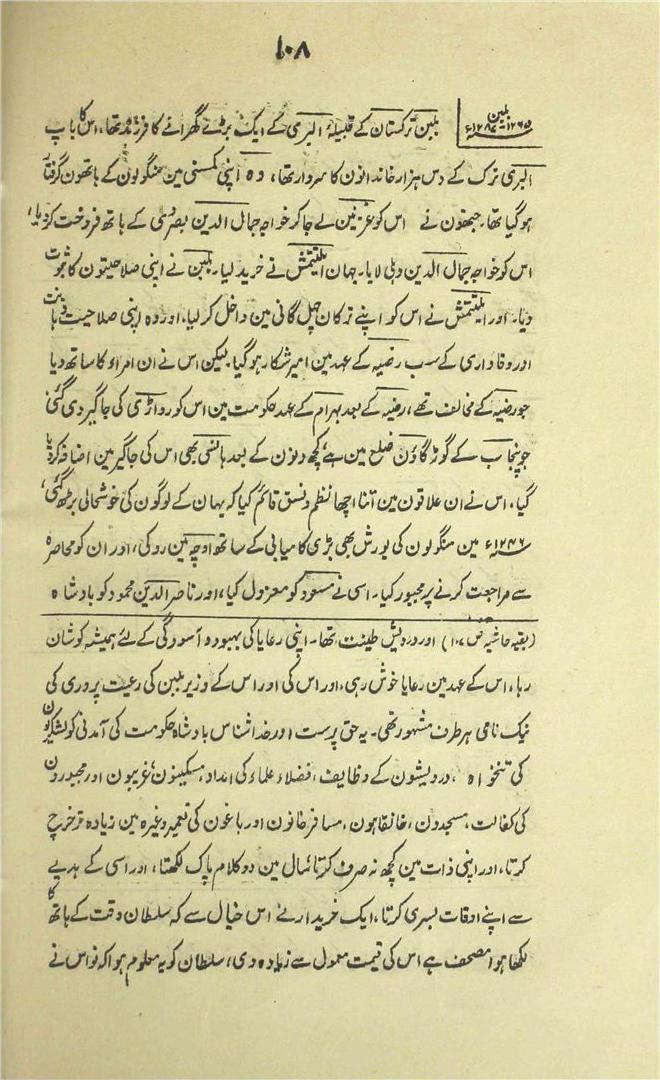 ۱۰۸
بلبن
۱۲۶۵-۱۲۸۷ء
بلبن ترکستان کے قبیلۂ البری کے ایک بڑے گھرانے کا فرزند تھا، اس کا باپ
البری ترک کے دس ہزار خاندانون کا سردار تھا، وہ اپنی کمسنی مین منگولون کے ہاتھون گرفتار
ہوگیا تھا۔ جنھون نے اس کو غزنین لے جاکر خواجہ جمال الدین بصری کے ہاتھ فروخت کردیا،
اس کو خواجہ جمال الدین دہلی لایا۔ جہان ایلتتمش نے خرید لیا۔ بلبن نے اپنی صلاحیتون کا ثبوت
دیا۔ اور ایلتتمش نے اس کو اپنے ترکان چہل گانی مین داخل کرلیا۔ اور وہ اپنی صلاحیت ذہانت
اور وفاداری کے سبب رضیہ کے عہد مین امیر شکار ہوگیا۔ لیکن اس نے ان امراء کا ساتھ دیا
جو رضیہ کے مخالف تھے، رضیہ کے بعد بہرام کے عہد حکومت مین اس کو رواڑی کی جاگیر دی گئی
جو پنجاب کے گوڑگاؤن ضلع مین ہے، کچھ دنون کے بعد ہانسی بھی اس کی جاگیر مین اضافہ کردیا
گیا۔ اس نے ان علاقون مین اتنا اچھا نظم ونسق قائم کیا کہ یہان کے لوگون کی خوشحالی بڑھ گئی،
۱۲۴۶ء مین منگولون کی یورش بھی بڑی کامیابی کے ساتھ اوچہ مین روکی، اور ان کو محاصرہ
سے مراجعت کرنے پر مجبور کیا۔ اسی نے مسعود کو معزول کیا، اور ناصر الدین محمود کو بادشاہ
(بقیہ حاشیہ ص ۱۰۷) اور درویش طینت تھا۔ اپنی رعایا کی بہبود و آسودگی کے لئے ہمیشہ کوشان
رہا، اس کے عہد مین رعایا خوش رہی، اور اس کی اور اس کے وزیر بلبن کی رعیت پروری کی
نیک نامی ہر طرف مشہور تھی۔ یہ حق پرست اور خداشناس بادشاہ حکومت کی آمدنی کو لشکریون
کی تنخواہ، درویشون کے وظایف، فضلاء علماء کی امداد، مسکینون، غریبون اور مجبورون
کی کفالت، مسجدون، خانقاہون، مسافر خانون اور باغون کی تعمیر وغیرہ مین زیادہ تر خرچ
کرتا، اور اپنی ذات مین کچھ نہ صرف کرتا، سال مین دو کلام پاک لکھتا، اور اسی کے ہدیے
سے اپنے اوقات بسری کرتا، ایک خریدار نے اس خیال سے کہ سلطان وقت کے ہاتھ کا
لکھا ہوا مصحف ہے اس کی قیمت معمول سے زیادہ دی، سلطان کو یہ معلوم ہوا کہ تو اس نے